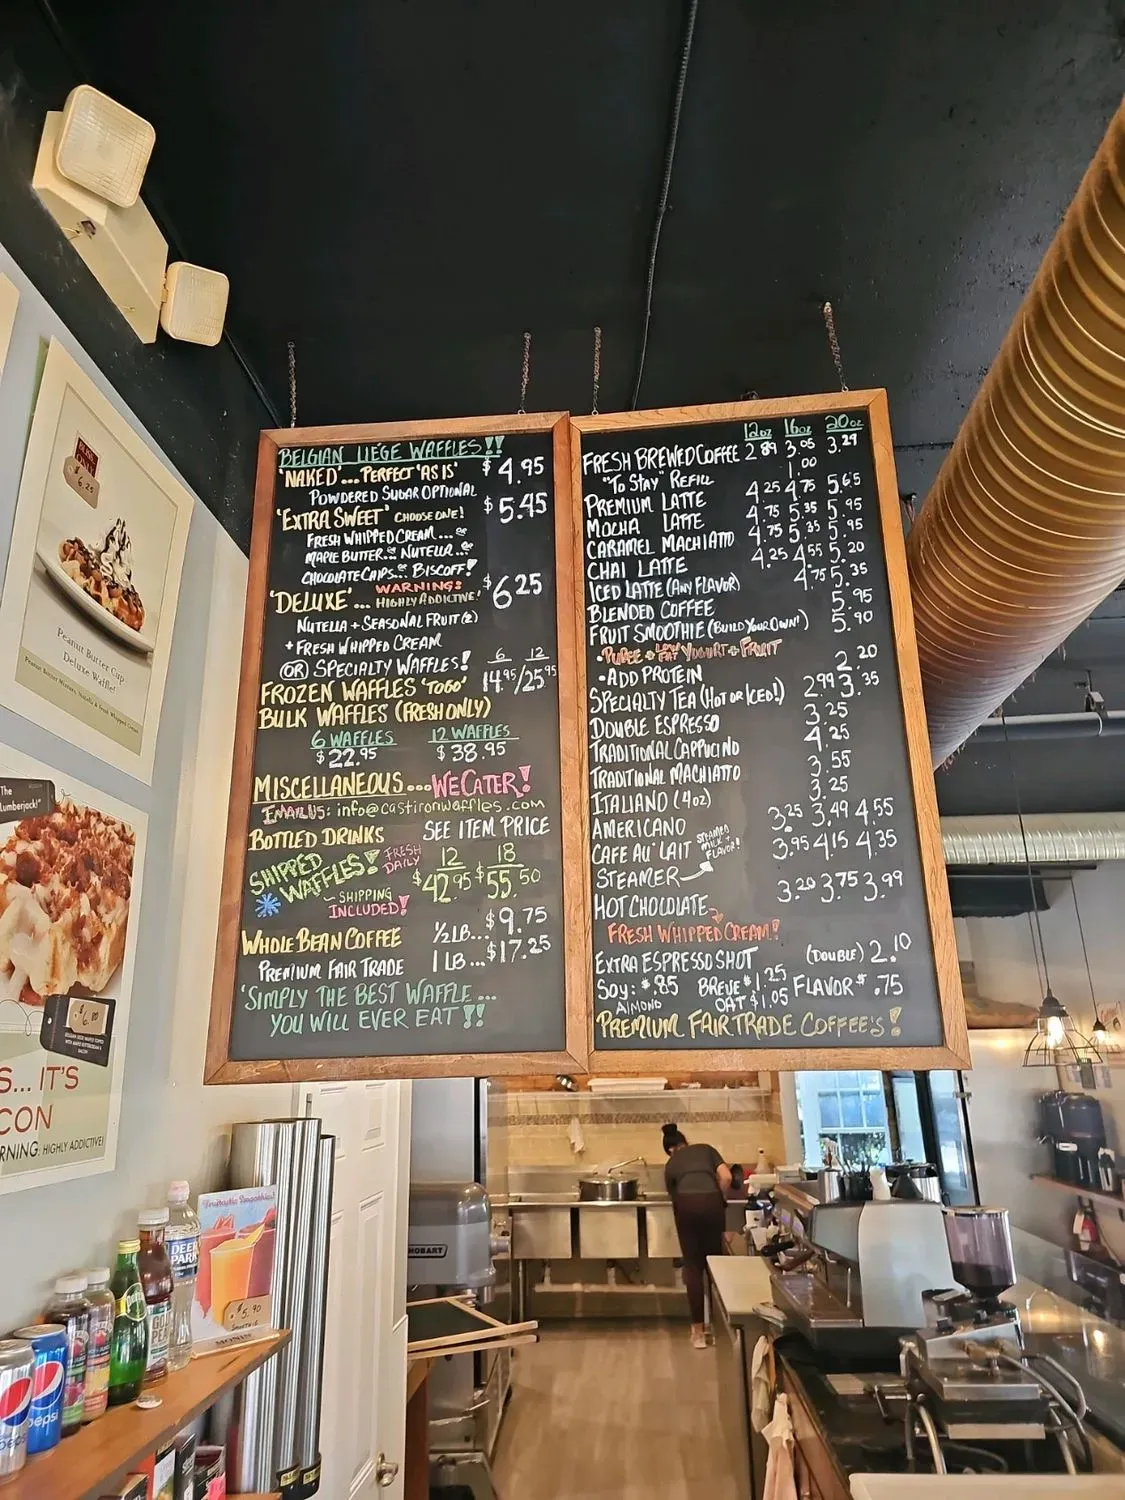 BELGIAN LIÈGE WAFFLES!!
'NAKED'...PERFECT 'AS IS' $4.95
POWDERED SUGAR OPTIONAL
'EXTRA SWEET' CHOOSE ONE! $5.45
FRESH WHIPPED CREAM...or
MAPLE BUTTER...or NUTELLA...or
CHOCOLATE CHIPS...or BISCOFF!
WARNING!
'DELUXE'... HIGHLY ADDICTIVE! $6.25
NUTELLA + SEASONAL FRUIT(2)
+ FRESH WHIPPED CREAM
OR SPECIALTY WAFFLES! 6 12
FROZEN WAFFLES 'TOGO' 14.95/25.95
BULK WAFFLES (FRESH ONLY)
6 WAFFLES 12 WAFFLES
$22.95 $38.95
MISCELLANEOUS...WE CATER!
EMAIL US: info@castironwaffles.com
BOTTLED DRINKS SEE ITEM PRICE
SHIPPED WAFFLES! FRESH DAILY 12 18
$42.95 $55.50
~SHIPPING INCLUDED!
WHOLE BEAN COFFEE ½ LB...$9.75
PREMIUM FAIR TRADE 1 LB...$17.25
'SIMPLY THE BEST WAFFLE...
YOU WILL EVER EAT'!!
12oz 16oz 20oz
FRESH BREWED COFFEE 2.89 3.05 3.29
"TO STAY" REFILL 1.00
PREMIUM LATTE 4.25 4.75 5.65
MOCHA LATTE 4.75 5.35 5.95
CARAMEL MACHIATTO 4.75 5.35 5.95
CHAI LATTE 4.25 4.55 5.20
ICED LATTE (ANY FLAVOR) 4.75 5.35
BLENDED COFFEE 5.95
FRUIT SMOOTHIE (BUILD YOUR OWN!) 5.90
•PUREE + LOW FAT YOGURT + FRUIT
•ADD PROTEIN 2.20
SPECIALTY TEA (HOT OR ICED!) 2.99 3.35
DOUBLE ESPRESSO 3.25
TRADITIONAL CAPPUCINO 4.25
TRADITIONAL MACHIATTO 3.55
ITALIANO (4oz) 3.25
AMERICANO 3.25 3.49 4.55
CAFE AU' LAIT 3.95 4.15 4.35
STEAMER STEAMED MILK + FLAVOR!
HOT CHOCOLATE 3.20 3.75 3.99
FRESH WHIPPED CREAM!
EXTRA ESPRESSO SHOT (DOUBLE) 2.10
SOY: $.85 BREVE $1.25 FLAVOR $.75
ALMOND OAT $1.05
PREMIUM FAIR TRADE COFFEE'S!
6.25
Peanut Butter Cup
Deluxe Waffle!
Lumberjack!"
S... IT'S
CON
RNING: HIGHLY ADDICTIVE!
HOBART
DEER PARK
pepsi
5.90